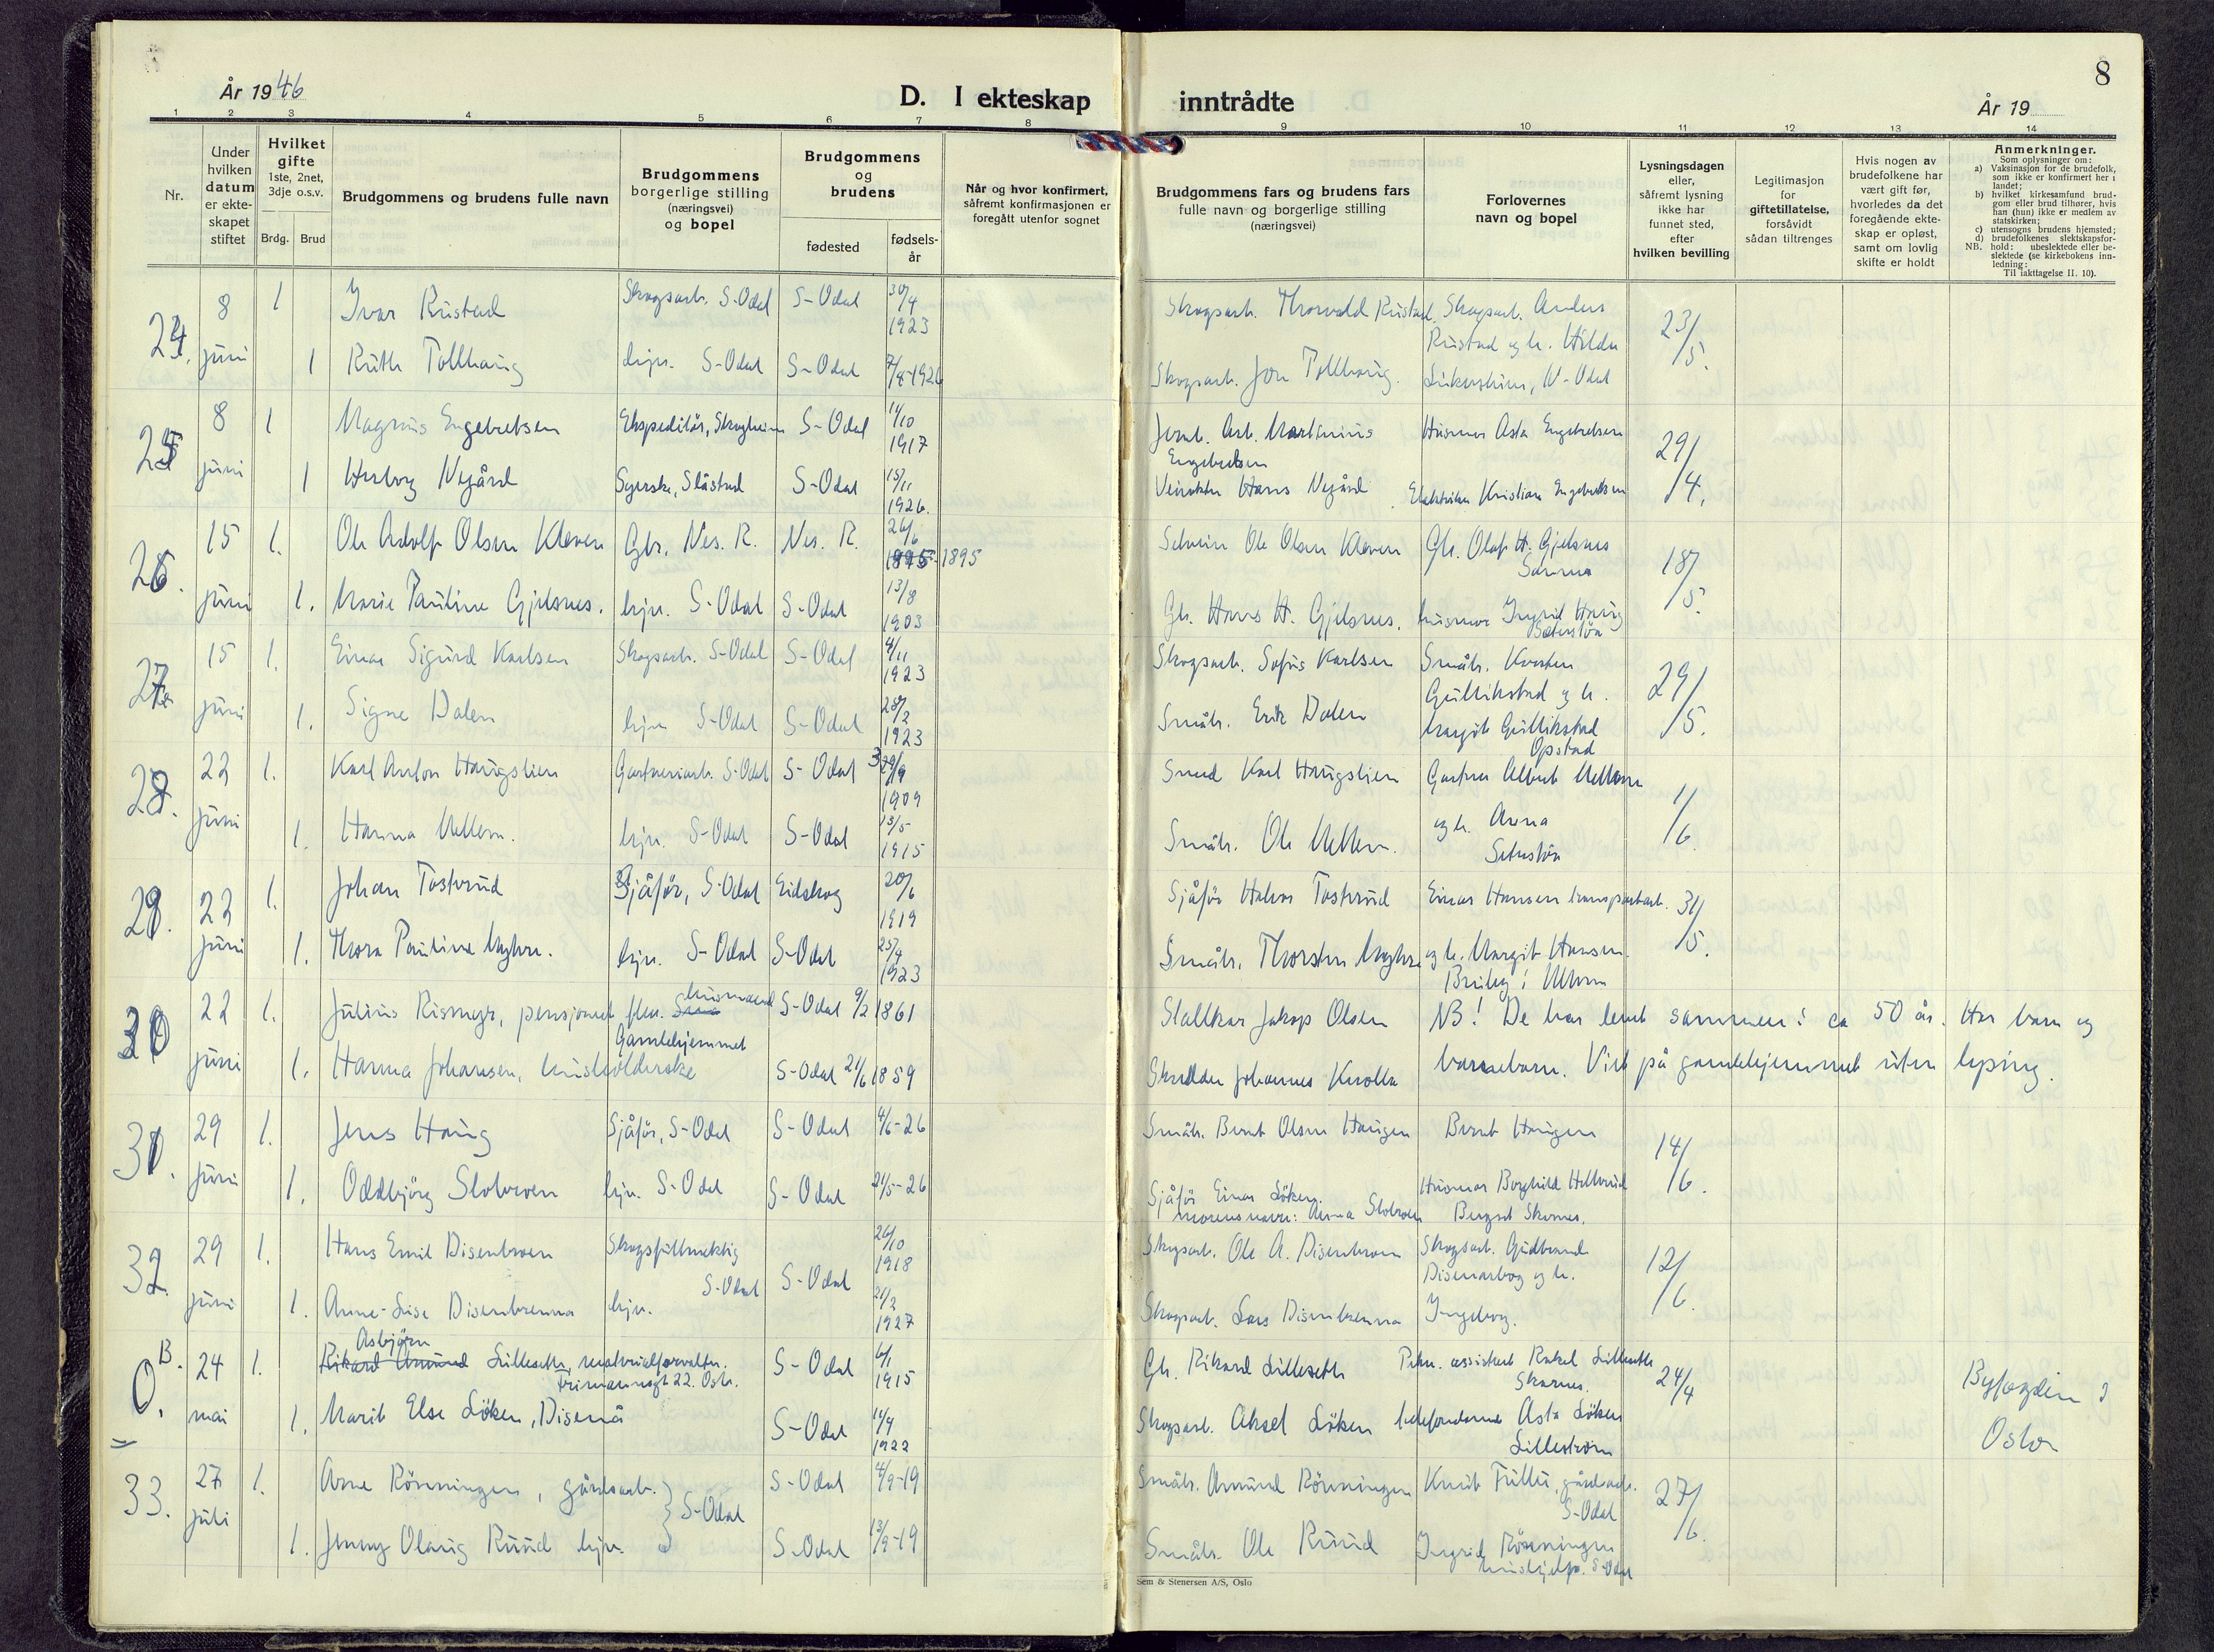 År 1946
D. I ekteskap inntrådte
8
År 19
1 2 3 4 5 6 7 8 9 10 11 12 13 14
Nr.
Under hvilken datum er ekteskapet stiftet
Hvilket gifte 1ste, 2net, 3dje o.s.v.
Brdg. Brud
Brudgommens og brudens fulle navn
Brudgommens borgerlige stilling (næringsvei) og bopel
Brudgommens og brudens
fødested
fødselsår
Når og hvor konfirmert, såfremt konfirmasjonen er foregått utenfor sognet
Brudgommens fars og brudens fars fulle navn og borgerlige stilling (næringsvei)
Forlovernes navn og bopel
Lysningsdagen eller, såfremt lysning ikke har funnet sted, efter hvilken bevilling
Legitimasjon for giftetillatelse, forsåvidt sådan tiltrenges
Hvis nogen av brudefolkene har vært gift før, hvorledes da det foregående ekteskap er opløst, samt om lovlig skifte er holdt
Anmerkninger.
Som oplysninger om:
a) Vaksinasjon for de brudefolk, som ikke er konfirmert her i landet;
b) hvilket kirkesamfund brudgom eller brud tilhører, hvis han (hun) ikke er medlem av statskirken;
c) utensogns brudens hjemsted;
d) brudefolkenes slektskapsforhold: ubeslektede eller beslektede (se kirkebokens innledning:
NB. Til iakttagelse II. 10).
24. 8 juni 1 Ivar Rustad Skogsarb. S-Odal S-Odal 30/4 1923 Skogsarb. Thorvald Rustad Skogsarb. Anders Rustad og h. Hilda 23/5.
1 Ruth Tollhaug hjv. S-Odal S-Odal 7/8-1926 Skogsarb. Jon Tollhaug. N-Odal
25 8 juni 1 Magnus Engebretsen Ekspeditör, Skogheim S-Odal 11/10 1917 Jernb. Arb. Martinius Engebretsen Husmor Asta Engebretsen 29/4.
1 Herborg Nygård Syerske, Slåstad S-Odal 15/11 1926. Hans Nygård Elektriker Kristian Engebretsen
26. 15 juni 1. Ole Adolf Olsen Kleven Gbr. Nes. R. Nes. R. 26/6 1895 Ole Olsen Kleven Gbr. Olaf H. Gjelsnes Sanna 18/5.
1. Marie Pauline Gjelsnes. hjv. S-Odal S-Odal 13/8 1903 Gbr. Hans H. Gjelsnes. husmor Ingrid Haug Seterstöa
27. 15 juni 1. Einar Sigurd Karlsen Skogsarb. S-Odal S-Odal 4/11 1923 Skogsarb. Sofus Karlsen Småbr. Karsten Gullikstad og h. 29/5.
1. Signe Dalen hjv. S-Odal S-Odal 28/2 1923 Småbr. Erik Dalen Margit Gullikstad Opstad
28. 22 juni 1. Karl Anton Haugslien Gartneriarb. S-Odal S-Odal 1909 Smed Karl Haugslien Gartner Albert Mellem 1/6.
1. Hanna Mellem. hjv. S-Odal S-Odal 13/5 1915 Småbr. Ole Mellem. og h. Anna Seterstöa
29. 22 juni 1. Johan Tostrud Sjåför, S-Odal Eidskog 20/6 1919 Sjåför Halvor Tostrud Einar Hansen transportarb. 31/5.
1. Thora Pauline Myhre. hjv. S-Odal S-Odal 25/4 1923 Småbr. Thorsten Myhre og h. Margit Hansen.
30 22 juni 1. Julius Rismyr, pensjonert husmand Gamlehjemmet S-Odal 9/2 1861 Stallkar Jakop Olsen NB! De har levet sammen i ca 50 år. Har barn og
1. Hanna Johansen, husholderske S-Odal 21/6 1859 Skredder Johannes Knolla barnebarn. Viet på gamlehjemmet uten lysing.
31. 29 juni 1. Jens Haug Sjåför, S-Odal S-Odal 4/6-26 Småbr. Bernt Olsen Haugen Bernt Haugen 14/6.
1. Oddbjörg Slobroen hjv. S-Odal S-Odal 21/5-26 Sjåför Einar Löken. morens navn: Anna Slobroen Husmor Borghild Hellerud Skarnes.
32. 29 juni 1. Hans Emil Disenbroen Skogsfullmektig S-Odal S-Odal 26/10 1918 Skogsarb. Ole A. Disenbroen Skogsarb. Gudbrand og h. 12/6.
1. Anne-Lise Disenbrenna hjv. 21/2 1927 Skogsarb. Lars Disenbrenna Ingeborg.
B. 0. 24 mai 1. Asbjörn Lilleseth, materialforvalter. Trimannsgt 22. Oslo. S-Odal 6/1 1915 Gbr. Rikard Lilleseth assistent Rakel Lilleseth Skarnes. 24/4 Byfogden i Oslo
1. Marit Else Löken, Disenå S-Odal 1922 Skogsarb. Aksel Löken telefondame Asta Löken Lilleström
33. 27 juli 1. Arne Rönningen, gårdsarb. } S-Odal S-Odal 4/9-19 Småbr. Amund Rönningen Knut Fulu, gårdsarb. S-Odal 27/6.
1. Jenny Olaug Ruud hjv. S-Odal 13/9-19 Småbr. Ole Ruud Ingrid Rönningen hushjelp. S-Odal
Sem & Stenersen A/S, Oslo